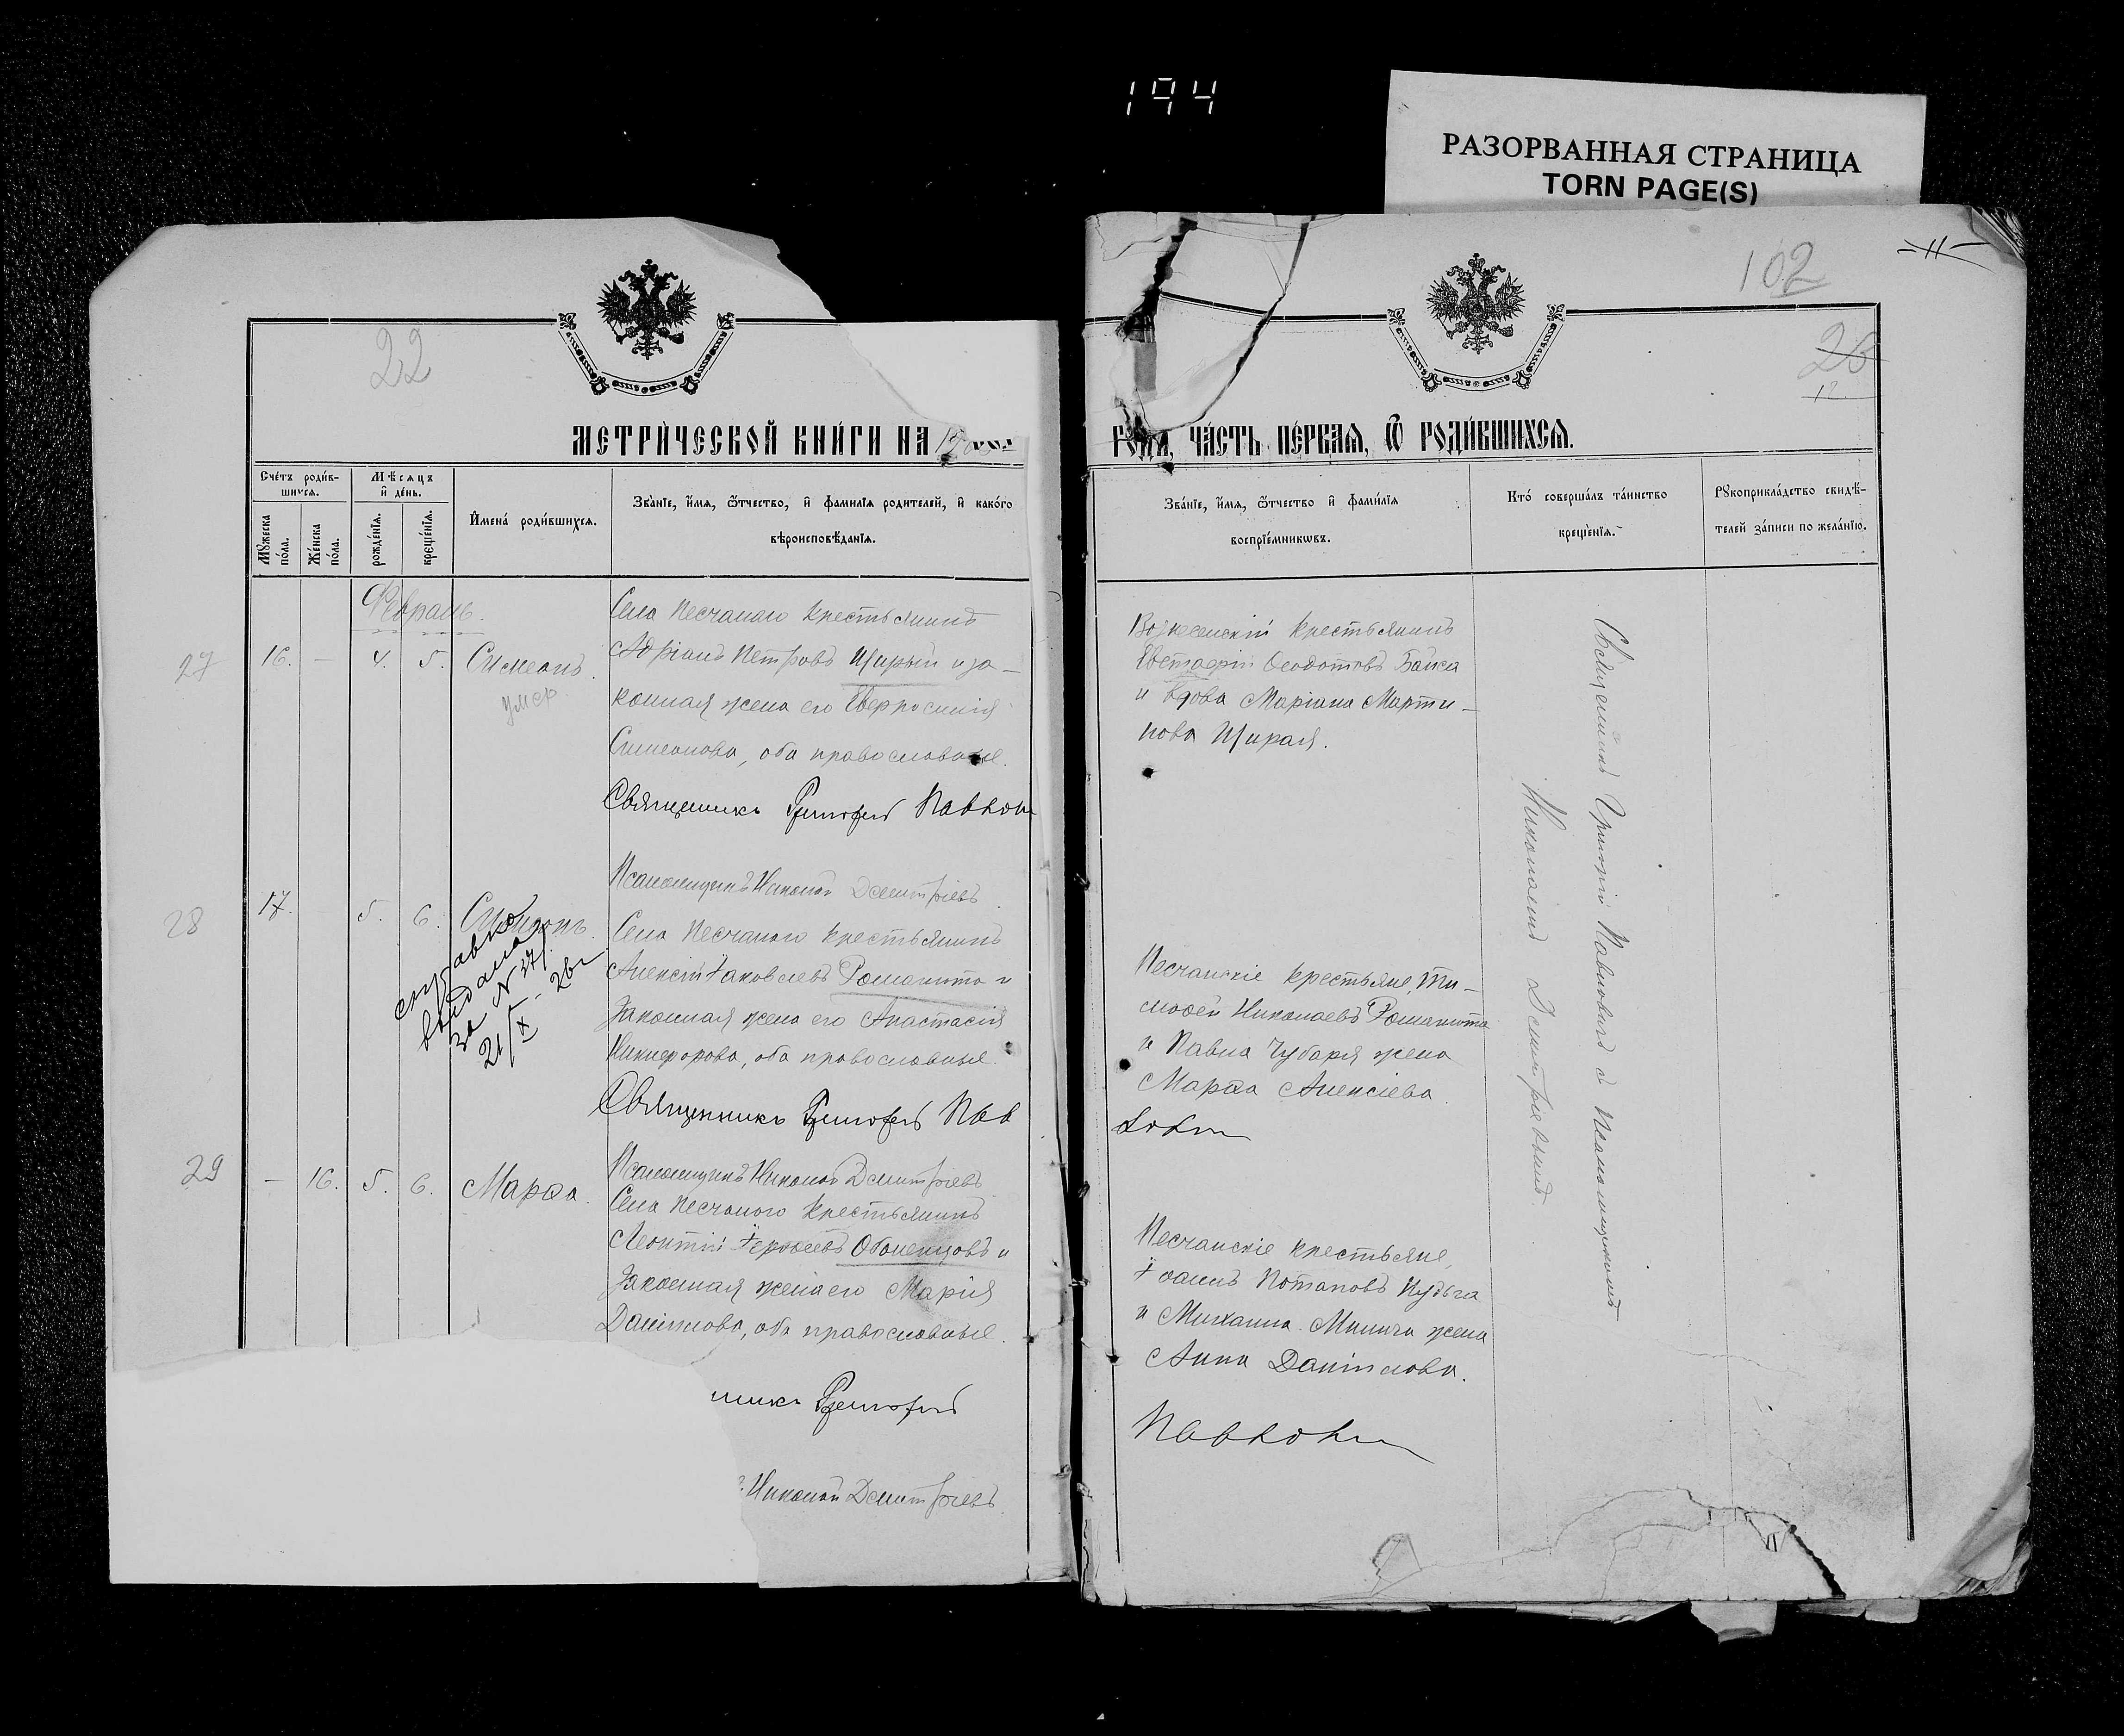 194
РАЗОРВАННАЯ СТРАНИЦА
TORN PAGE(S)
22
МЕТРИЧЕСКОЙ КНИГИ НА
Счетъ родив-
шихся.
Мѣсяцъ
и день.
Имена родившихся.
Званіе, имя, отчество, и фамилія родителей, и какого
вѣроисповѣданія.
Мужеска
пола.
Женска
пола.
рожденія.
крещенія.
Февраль.
27
16.
–
4.
5.
Симеонъ.
умер
Села Песчанаго крестьянинъ
Адріанъ Петровъ Щирый и за-
конная жена его Евфросинія
Симеонова, оба православные.
Священникъ Григорій Павлов
Псаломщикъ Николай Димитріевъ
28
17.
5.
6.
справка
выдана
за N 37
21/IX - 26г
Села Песчанаго крестьянинъ
Алексій Іаковлевъ Романюта и
законная жена его Анастасія
Никифорова, оба православные.
Священникъ Григорій Пав
Псаломщикъ Николай Димитріевъ
29
–
16.
5.
6.
Марѳа.
Села Песчаного крестьянинъ
Леонтій Іероѳеевъ Оболенцовъ и
законная жена его Марія
Даніилова, оба православные.
никъ Григорій
Николай Димитріевъ
102
-11-
26
12
ГОДА, ЧАСТЬ ПЕРВАЯ, Ѿ РОДИВШИХСЯ.
Званіе, имя, отчество и фамилія
воспріемниковъ.
Кто совершалъ таинство
крещенія.
Рукоприкладство свидѣ-
телей записи по желанію.
Вознесенскій крестьянинъ
Евстафій Ѳеодотовъ Байса
и вдова Маріана Марти-
нова Щирая.
Песчанскіе крестьяне, Ти-
моѳей Николаевъ Романюта
и Павла Чубаря жена
Марѳа Алексіева.
ловъ
Песчанскіе крестьяне,
Іоаннъ Потаповъ Кудьга
и Михаила Минича жена
Анна Даніилова.
Павловъ
Священникъ Григорій Павловичъ и Псаломщикомъ
Николаемъ Димитріевымъ.